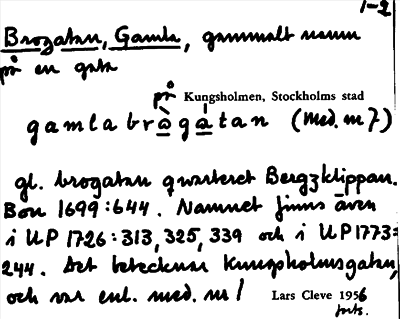 1-2
Brogatan, Gamla, gammalt namn
på en gata
på Kungsholmen, Stockholms stad
gamla brågatan (Med. nr 7)
gl. brogatan qwarteret Bergzklippan.
Bou 1699:644. Namnet finns även
i UP 1726:313, 325, 339 och i UP 1773:
244. Det betecknar Kungsholmsgatan,
och var enl. med. nr 1 Lars Cleve 1956
forts.